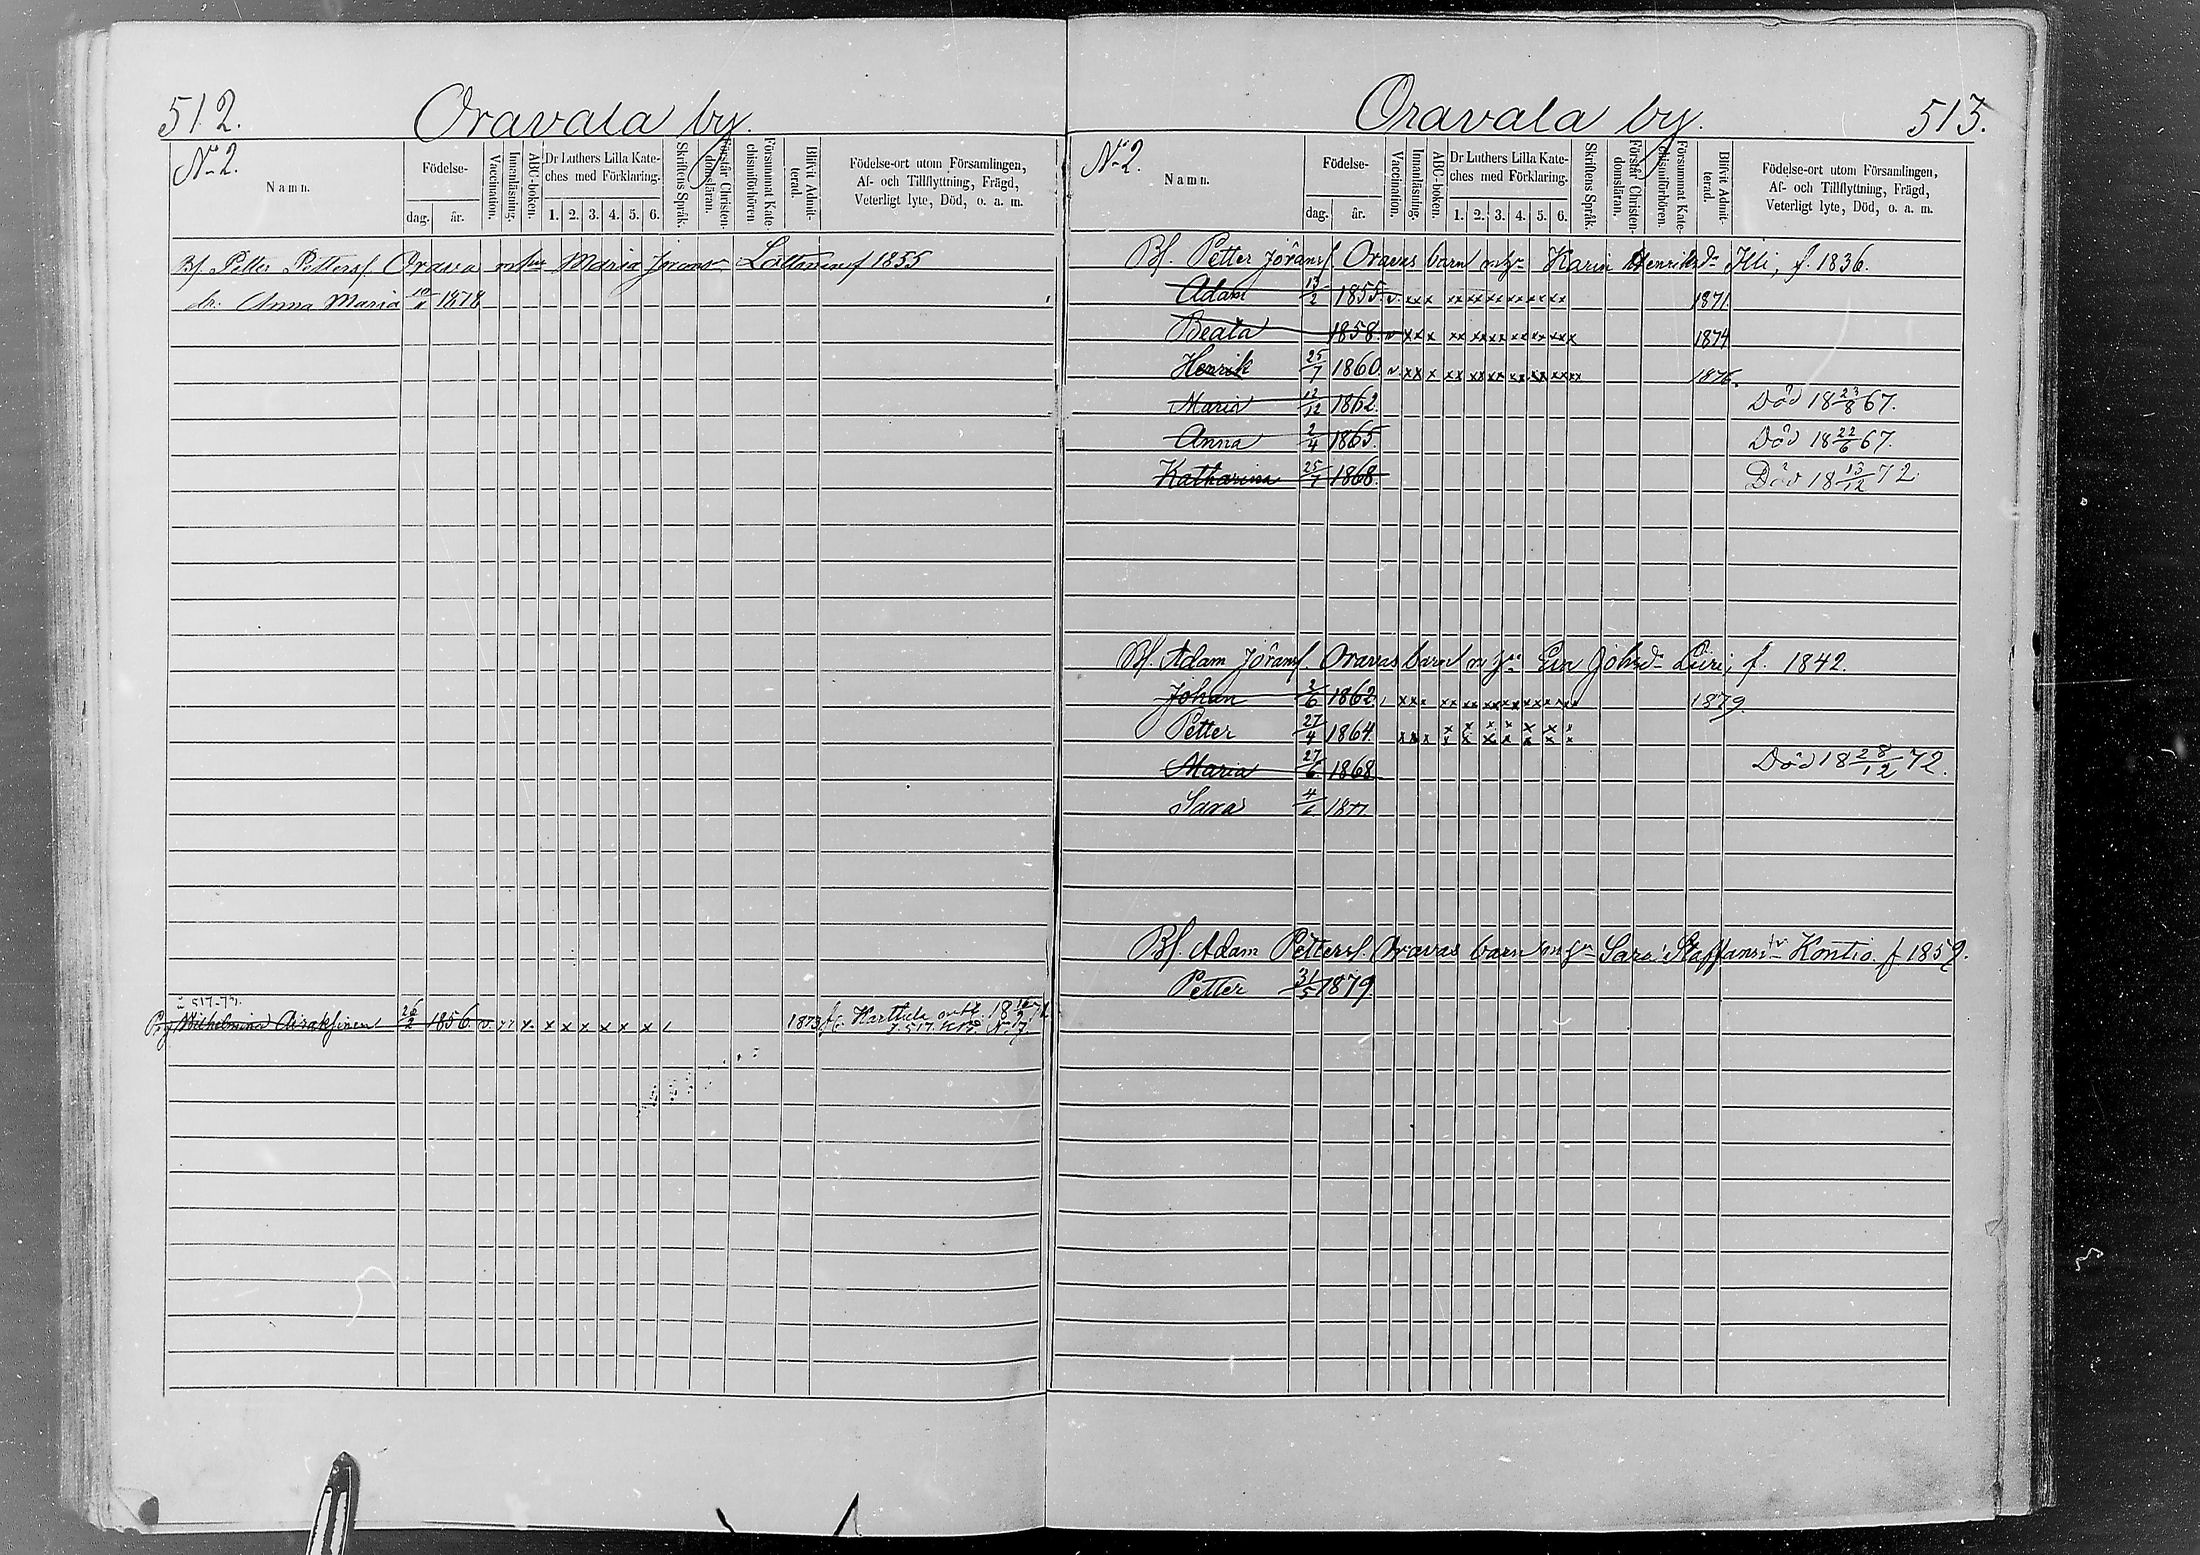 512.
Oravala by.
No 2.
Namn.
Födelse-
dag.
år.
Vaccination.
Innanläsning.
ABC-boken.
Dr Luthers Lilla Kate-
ches med Förklaring.
1. 2. 3. 4. 5. 6.
Skriftens Språk.
Förstår Christen-
domsläran.
Försummat Kate
chismiförhören
Blifvit Admit-
terad.
Födelse-ort utom Församlingen,
Af- och Tillflyttning, Frägd,
Veterligt lyte, Död, o. a. m.
Bf. Petter Petterss. Orava Maria f 1855
dr. Anna Maria 1878
Wilhelmina Airaksinen 26/2 1856. v. x x x x x x x 1873 Karttula
513.
Oravala by.
No 2.
Namn.
Födelse-
dag.
år.
Vaccination.
Innanläsning.
ABC-boken.
Dr Luthers Lilla Kate-
ches med Förklaring.
1. 2. 3. 4. 5. 6.
Skriftens Språk.
Förstår Christen-
domsläran.
Försummat Kate-
chismiförhören.
Blifvit Admit-
terad.
Födelse-ort utom Församlingen,
Af- och Tillflyttning, Frägd,
Veterligt lyte, Död, o. a. m.
Bf. Petter Jöranss. Oravas barn Karin Henriksdr Illi, f. 1836.
Adam 13/2 1855. v. xxx xx xx xx xx xx xx 1871.
Beata 1858. v xxx xx xx xx xx xx xxx 1874
Henrik 25/7 1860. v. xx x xx xx xx xx xx xxxx 1876.
Maria 12/12 1862. Död 18 23/8 67.
Anna 2/4 1865. Död 18 22/6 67.
Katharina 25/7 1868. Död 18 13/12 72
Bf. Adam Jöranss. Oravas barn Eva Johsdr f. 1842.
Johan 2/6 1862. xxx xx xx xx xx xx xxx 1879.
Petter 27/4 1864. xxx x x x x x x x
Maria 27/6 1868 Död 18 28/12 72.
Sara 1877.
Bf. Adam Petterss. Oravas barn Sara Staffansdr Kontio f 1859.
Petter 31/5 1879